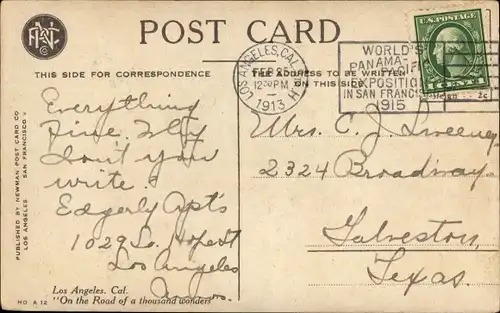 POST CARD
THIS SIDE FOR CORRESPONDENCE
THE ADDRESS TO BE WRITTEN
ON THIS SIDE.
LOS ANGELES, CAL.
FEB 25
12 PM
1913
WORLD'S
PANAMA-PACIFIC
EXPOSITION
IN SAN FRANCISCO
1915
U.S. POSTAGE
Everything
fine. Why
don't you
write?
Edgerly Apt's
1029 So. Hope St
Los Angeles
Mrs. C. J. Sweeney
2324 Broadway.
Galveston,
Texas.
PUBLISHED BY NEWMAN POST CARD CO
LOS ANGELES SAN FRANCISCO
Los Angeles. Cal.
"On the Road of a thousand wonders"
NO A 12